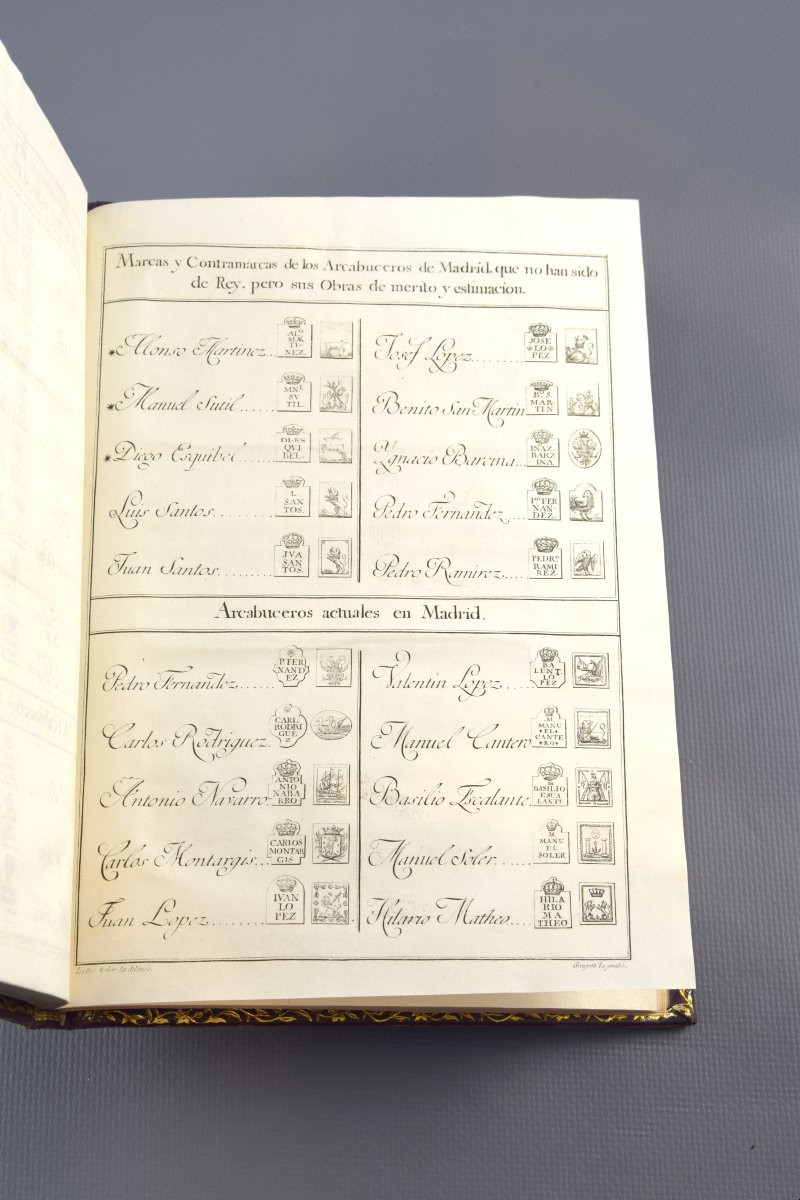 Marcas y Contramarcas de los Arcabuceros de Madrid, que no han sido
de Rey, pero sus Obras de merito y estimacion.
*Alonso Martinez
ALº
MAR
TI-
NEZ.
*Manuel Sutil
MNL
SV
TIL.
*Diego Esquibel
DI-ES
QVI
BEL.
Luis Santos
L
SAN
TOS.
Juan Santos
JVA.
SAN
TOS.
Josef Lopez
JOSE
LO
PEZ
Benito San Martin
Bº. S.
MAR
TIN
Ygnacio Barcina
INAZ.
BARZ
INA.
Pedro Fernandez
Pº FER
NAN
DEZ.
Pedro Ramirez
PEDRº
RAMI
REZ.
Arcabuceros actuales en Madrid.
Pedro Fernandez
P. FER
NAND
EZ
Carlos Rodriguez
CARL
RODRI
GUE
Z
Antonio Navarro
ANTO
NIO
NABA
RRO
Carlos Montargis
CARLOS
MONTAR
GIS
Juan Lopez
IVAN
LO
PEZ
Valentin Lopez
BA
LENT
LO
PEZ
Manuel Cantero
M.
MANU
EL
CANTE
RO
Basilio Escalante
M
BASILIO
ESCA
LANTE
Manuel Soler
M
MANU
EL
SOLER
Hilario Matheo
HILA
RIO
MA
THEO
Isidro Soler la delineó
la grabó.